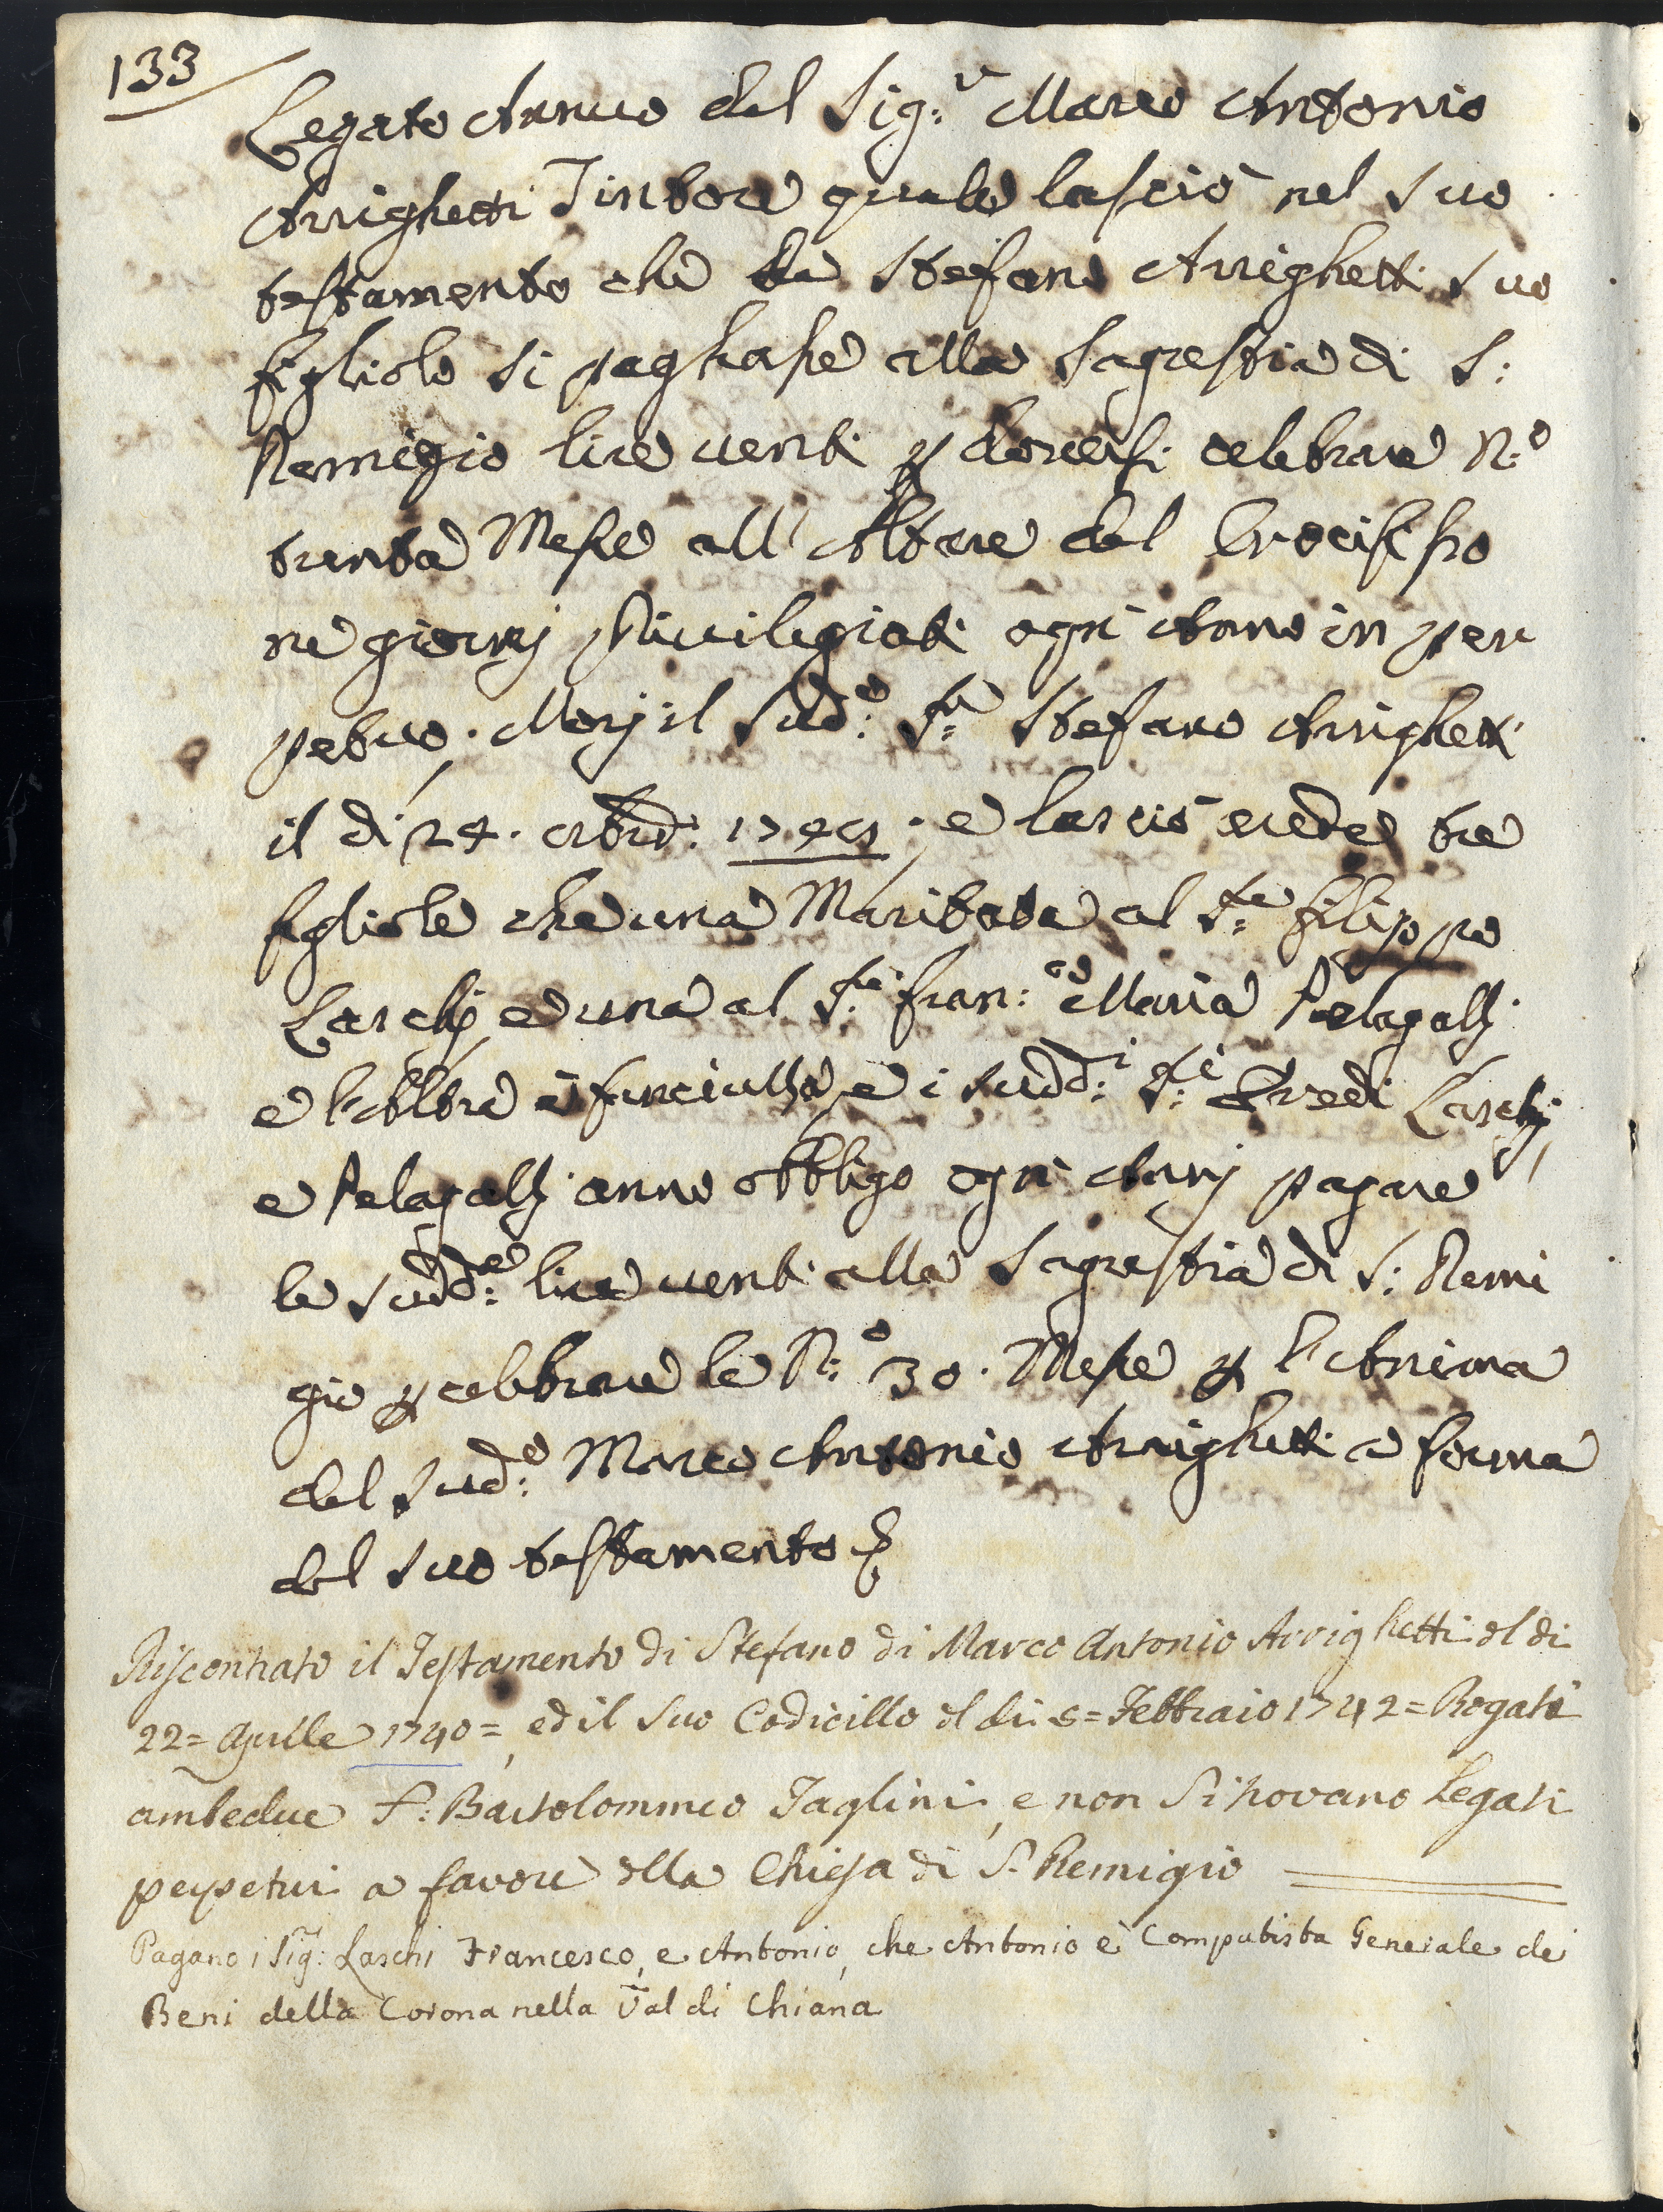 133
Legato Annuo del Sig:r Marco Antonio
Arrighetti Tintore quale lasciò nel suo
testamento che da Stefano Arrighetti suo
figliolo si paghasse alla Sagrestia di S:
Remigio lire venti p doversi celebrare N:o
trenta Messe all'Altare del Crocifisso
ne giorni privilegiati ogni Anno in per
petuo. Morj il sud:o S:re Stefano Arrighetti
il dì 24. ottbre: e lasciò erede tre
figliole che una Maritata al S:re filippo
Laschj e una al S:re fran:co Maria Pelagallj
e l'Altra è fanciulla, e i sudd:i S:ri Eredi Laschj,
e Pelagallj anno obbligo ogni Annj pagare
le sudd:e lire venti alla Sagrestia di S: Remi
gio p celebrare le N:o 30. Messe p l'Anima
del sud:o Marco Antonio Arrighetti a forma
del suo testamento
Riscontrato il Testamento di Stefano di Marco Antonio Arrighetti del di
22= Aprille 1740=, ed il suo Codicillo del di 6= Febbraio 1742= Rogati
ambedue S: Bartolommeo Taglini, e non si trovano Legati
perpetui a favore della Chiesa di S. Remigio
Pagano i Sig:ri Laschi Francesco, e Antonio, che Antonio è Computista Generale de
Beni della Corona nella Val di Chiana